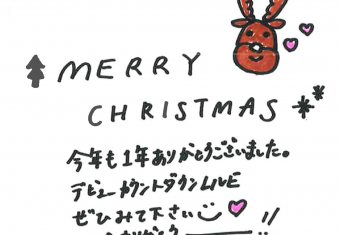 MERRY
CHRISTMAS
今年も1年ありがとうございました。
デビューカウントダウンLIVE
ぜひみて下さい